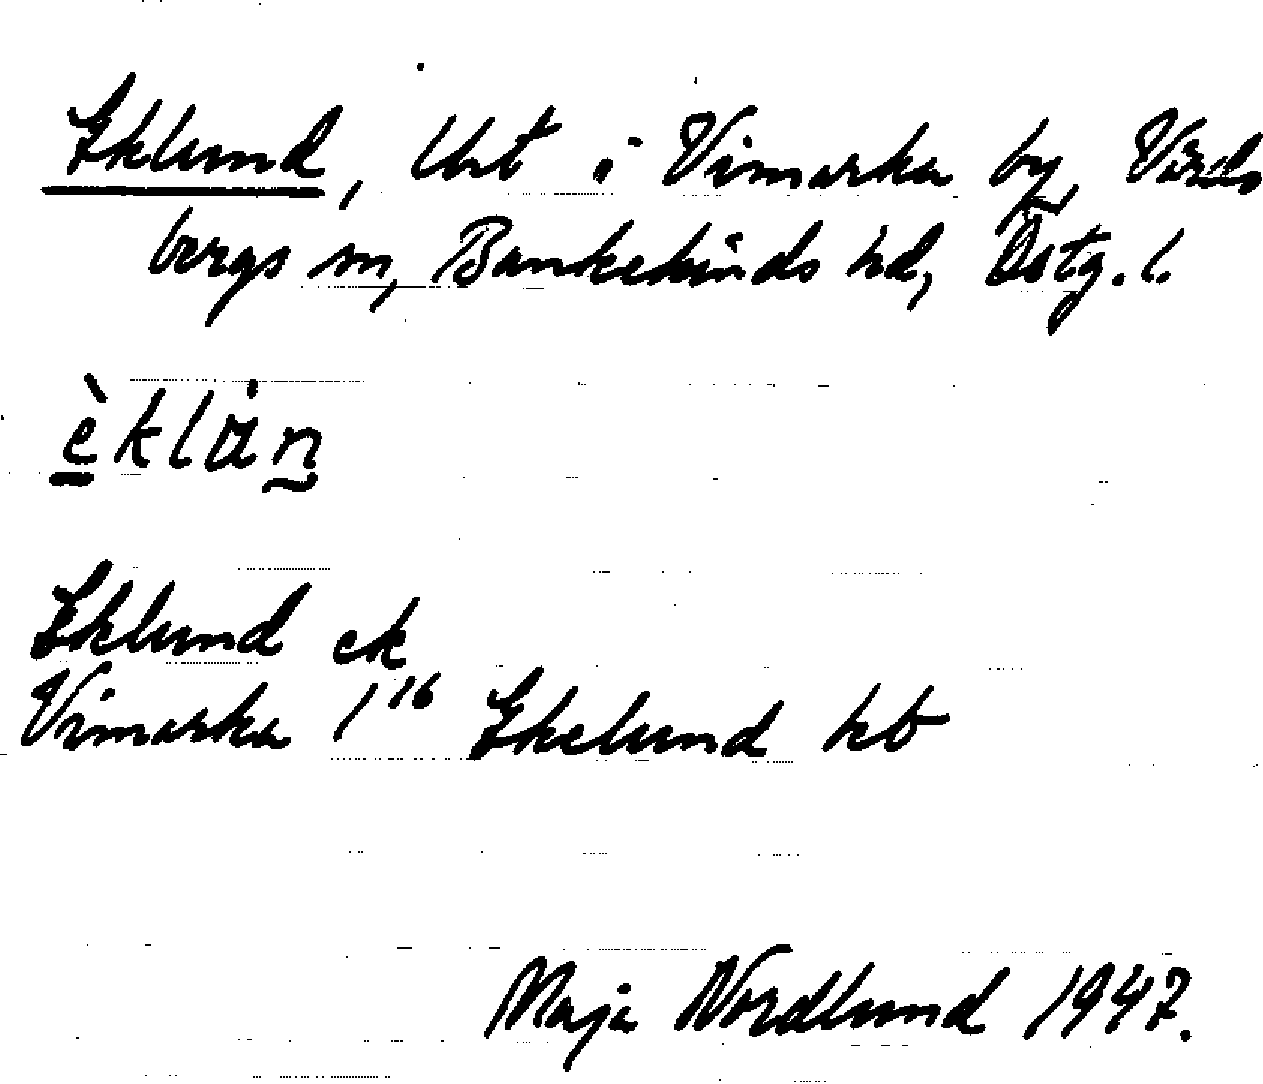 Eklund, lht i Vimarka by, Vårds
bergs sn, Bankekinds hd, Östg. l.
èklȧn
Eklund ek
Vimarka 1¹⁶ Ekelund kb
Maja Nordlund 1947.